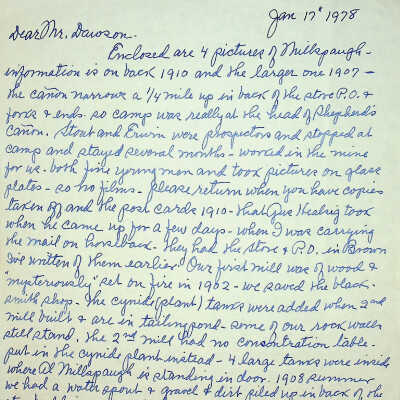 Jan 17" 1978
Dear Mr. Dawson.
Enclosed are 4 pictures of Millspaugh -
information is on back 1910 and the larger one 1907 -
the cañon narrows a 1/4 mile up in back of the store P.O. &
forks & ends. so camp was really at the head of Shepherd's
Cañon. Stout and Erwin were prospectors and stopped at
camp and stayed several months - worked in the mine
for us - both fine young men and took pictures on glass
plates - so no films - please return when you have copies
taken of and the post cards 1910 - that Gus took
when he came up for a few days - when I was carrying
the mail on horseback. they had the store & P.O. in Brown
I've written of them earlier. Our first mill was of wood &
"mysteriously" set on fire in 1902 - we saved the black-
smith shop - The cynide (plant) tanks were added when 2nd
mill built & are in tailing pond - some of our rock walls
still stand. the 2nd mill had no consentration table -
put in the cynide plant instead - 4 large tanks were inside
where Al Millspaugh is standing in door. 1908 summer
we had a water spout & gravel & dirt piled up in back of the